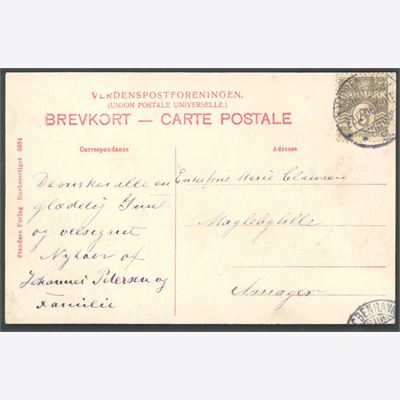 VERDENSPOSTFORENINGEN.
(UNION POSTALE UNIVERSELLE.)
BREVKORT — CARTE POSTALE
DANMARK
Correspondance
Adresse
Stenders Forlag Eneberettiget 6634
De ønskes alle en
glædelig Juul
og velsignet
Nytaar af
Johannes Petersen og
Familie
Enkefrue Marie Clausen
Maglebylille
Amager